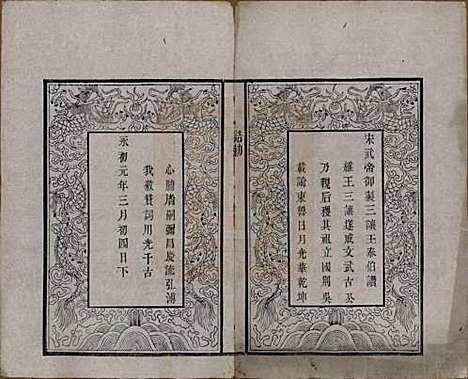 宋武帝御製三讓王泰伯讚
維王三讓運咸文武古公
乃親后稷其祖立國荆吳
載諭東魯日月光華乾坤
誥勅
心肺嗣彌昌慶流弘溥
我歌贊詞用光千古
永初元年三月初四日下